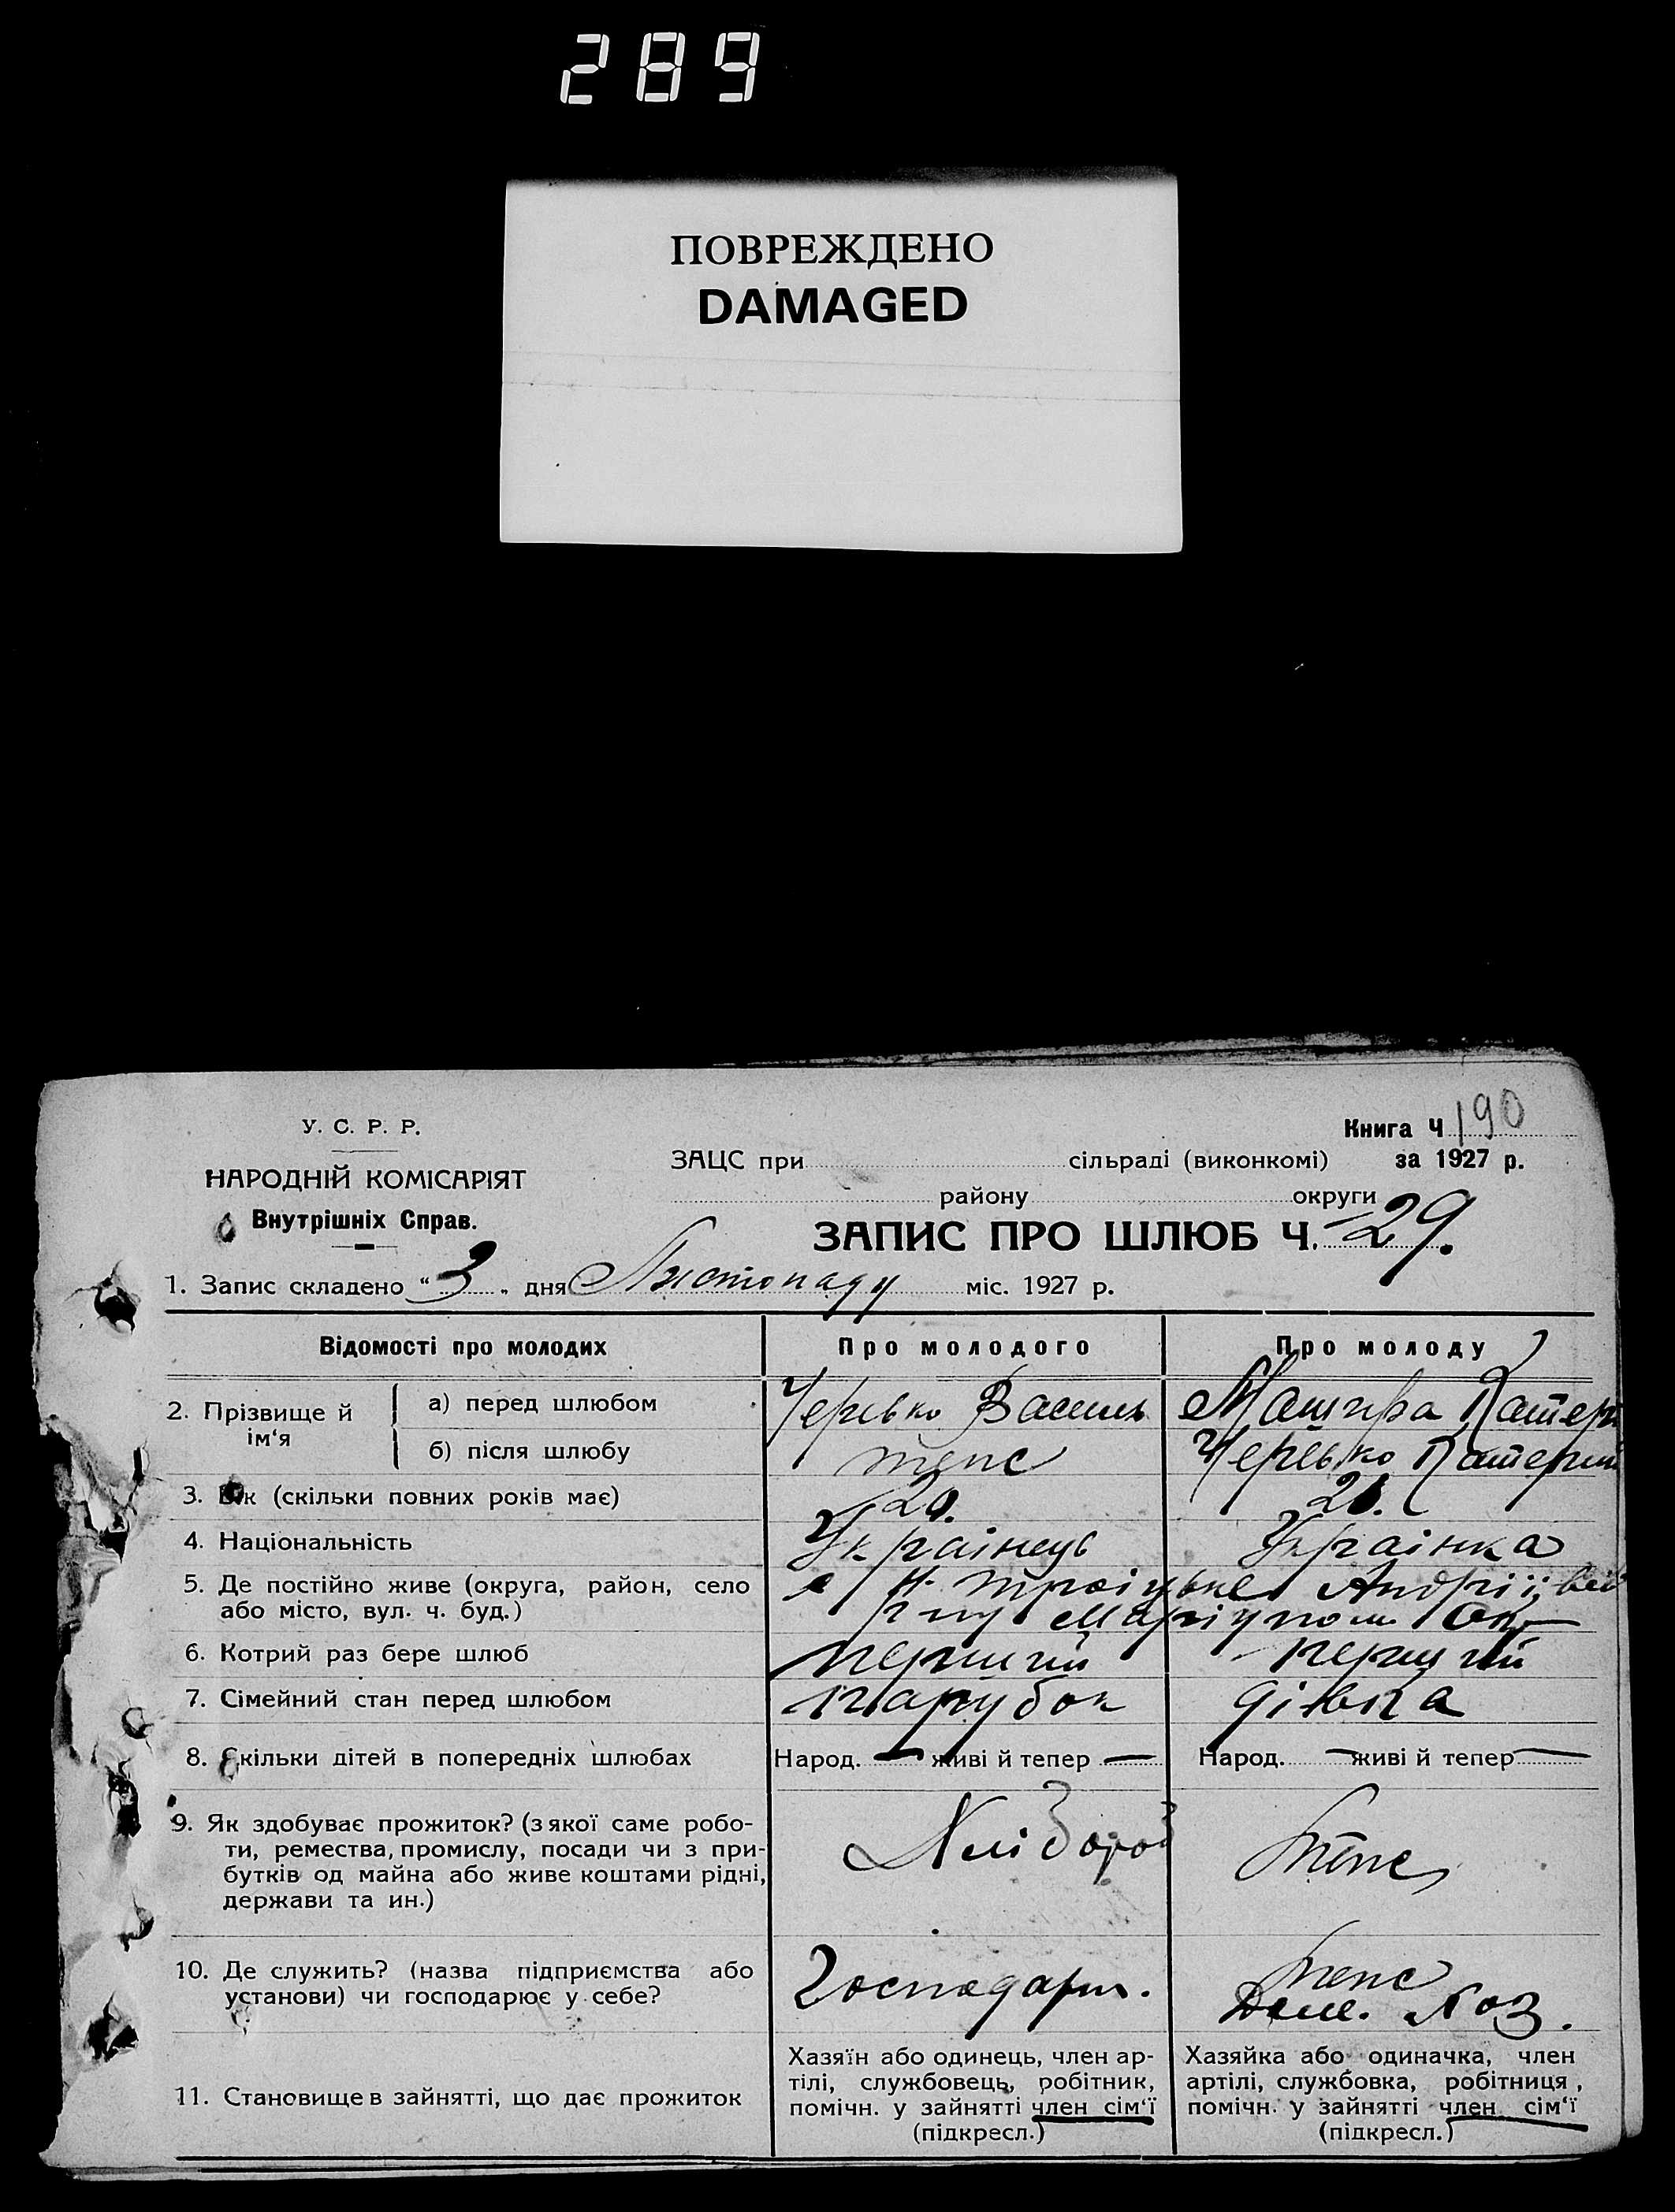 289
ПОВРЕЖДЕНО
DAMAGED
У. С. Р. Р.
НАРОДНІЙ КОМІСАРІЯТ
Внутрішніх Справ.
Книга Ч 190
ЗАЦС при сільраді (виконкомі) за 1927 р.
району округи
ЗАПИС ПРО ШЛЮБ Ч. 29.
1. Запис складено “3„ дня Листопаду міс. 1927 р.
Відомості про молодих
Про молодого
Про молоду
2. Прізвище й ім‘я
а) перед шлюбом
Черевко Василь
Катер
б) після шлюбу
теж
Черевко Катерин
3. Вік (скільки повних років має)
20.
4. Національність
Українець
Українка
5. Де постійно живе (округа, район, село
або місто, вул. ч. буд.)
Троїцьке Андріїв
Маріупол Окр
6. Котрий раз бере шлюб
перший
перший
7. Сімейний стан перед шлюбом
парубок
дівка
8. Скільки дітей в попередніх шлюбах
Народ. — живі й тепер —
Народ. — живі й тепер —
9. Як здобуває прожиток? (з якої саме робо-
ти, ремества, промислу, посади чи з при-
бутків од майна або живе коштами рідні,
держави та ин.)
Хлібороб
10. Де служить? (назва підприємства або
установи) чи господарює у себе?
Господарш.
Дом. Хоз.
11. Становище в зайнятті, що дає прожиток
Хазяїн або одинець, член ар-
тілі, службовець, робітник,
помічн. у зайнятті член сім‘ї
(підкресл.)
Хазяйка або одиначка, член
артілі, службовка, робітниця,
помічн. у зайнятті член сім‘ї
(підкресл.)